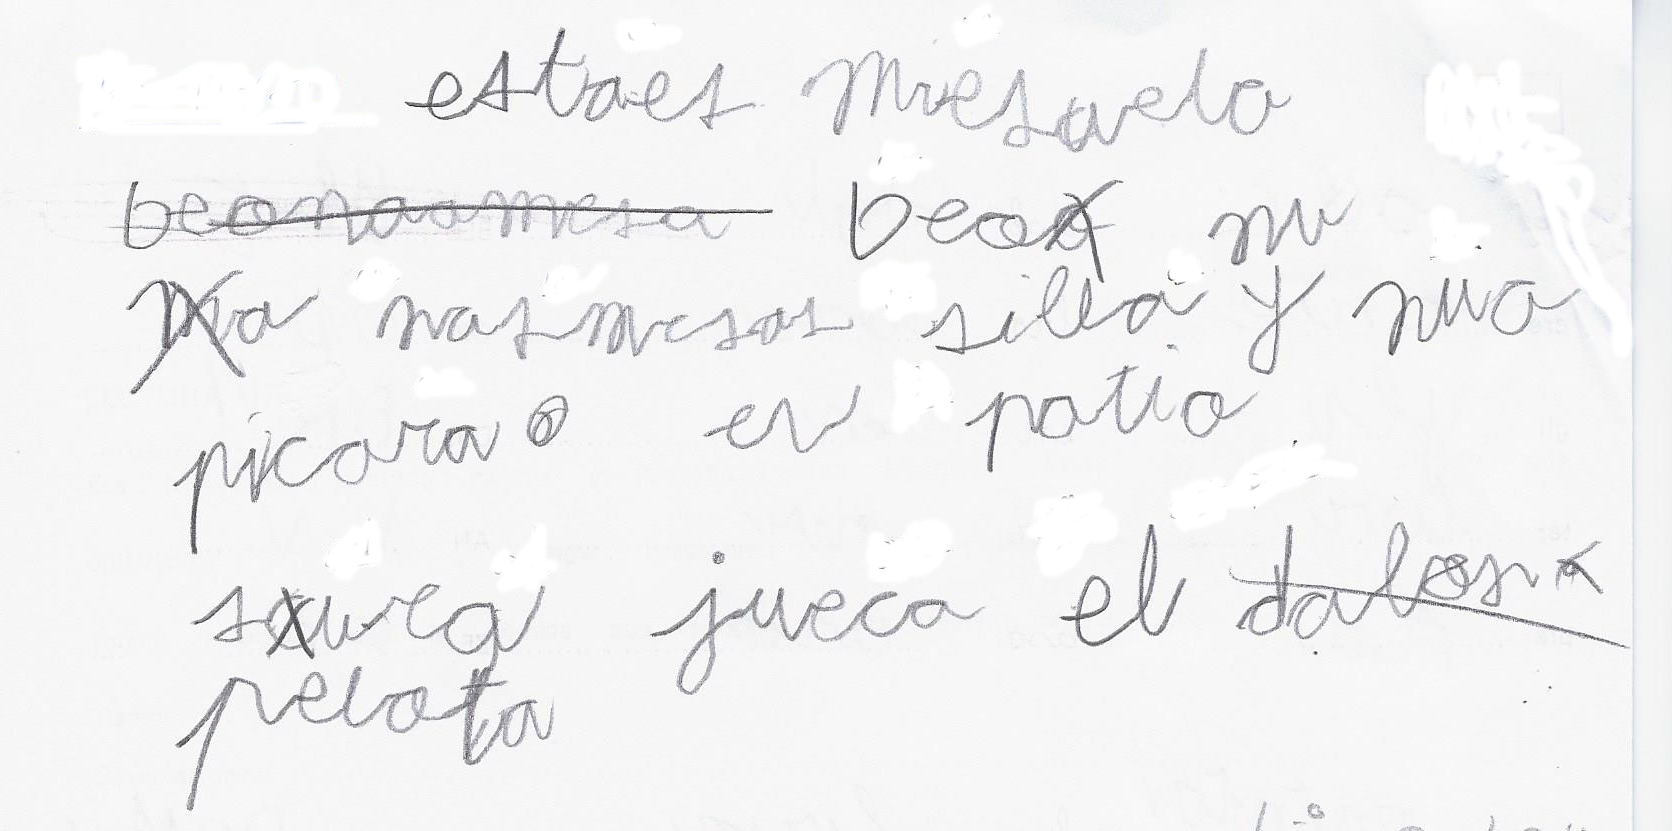 estaes miesavela
beonaamesa beoa nu
na nasmesas silla y nua
picara en patio
saurea jueca el dalosna
pelota